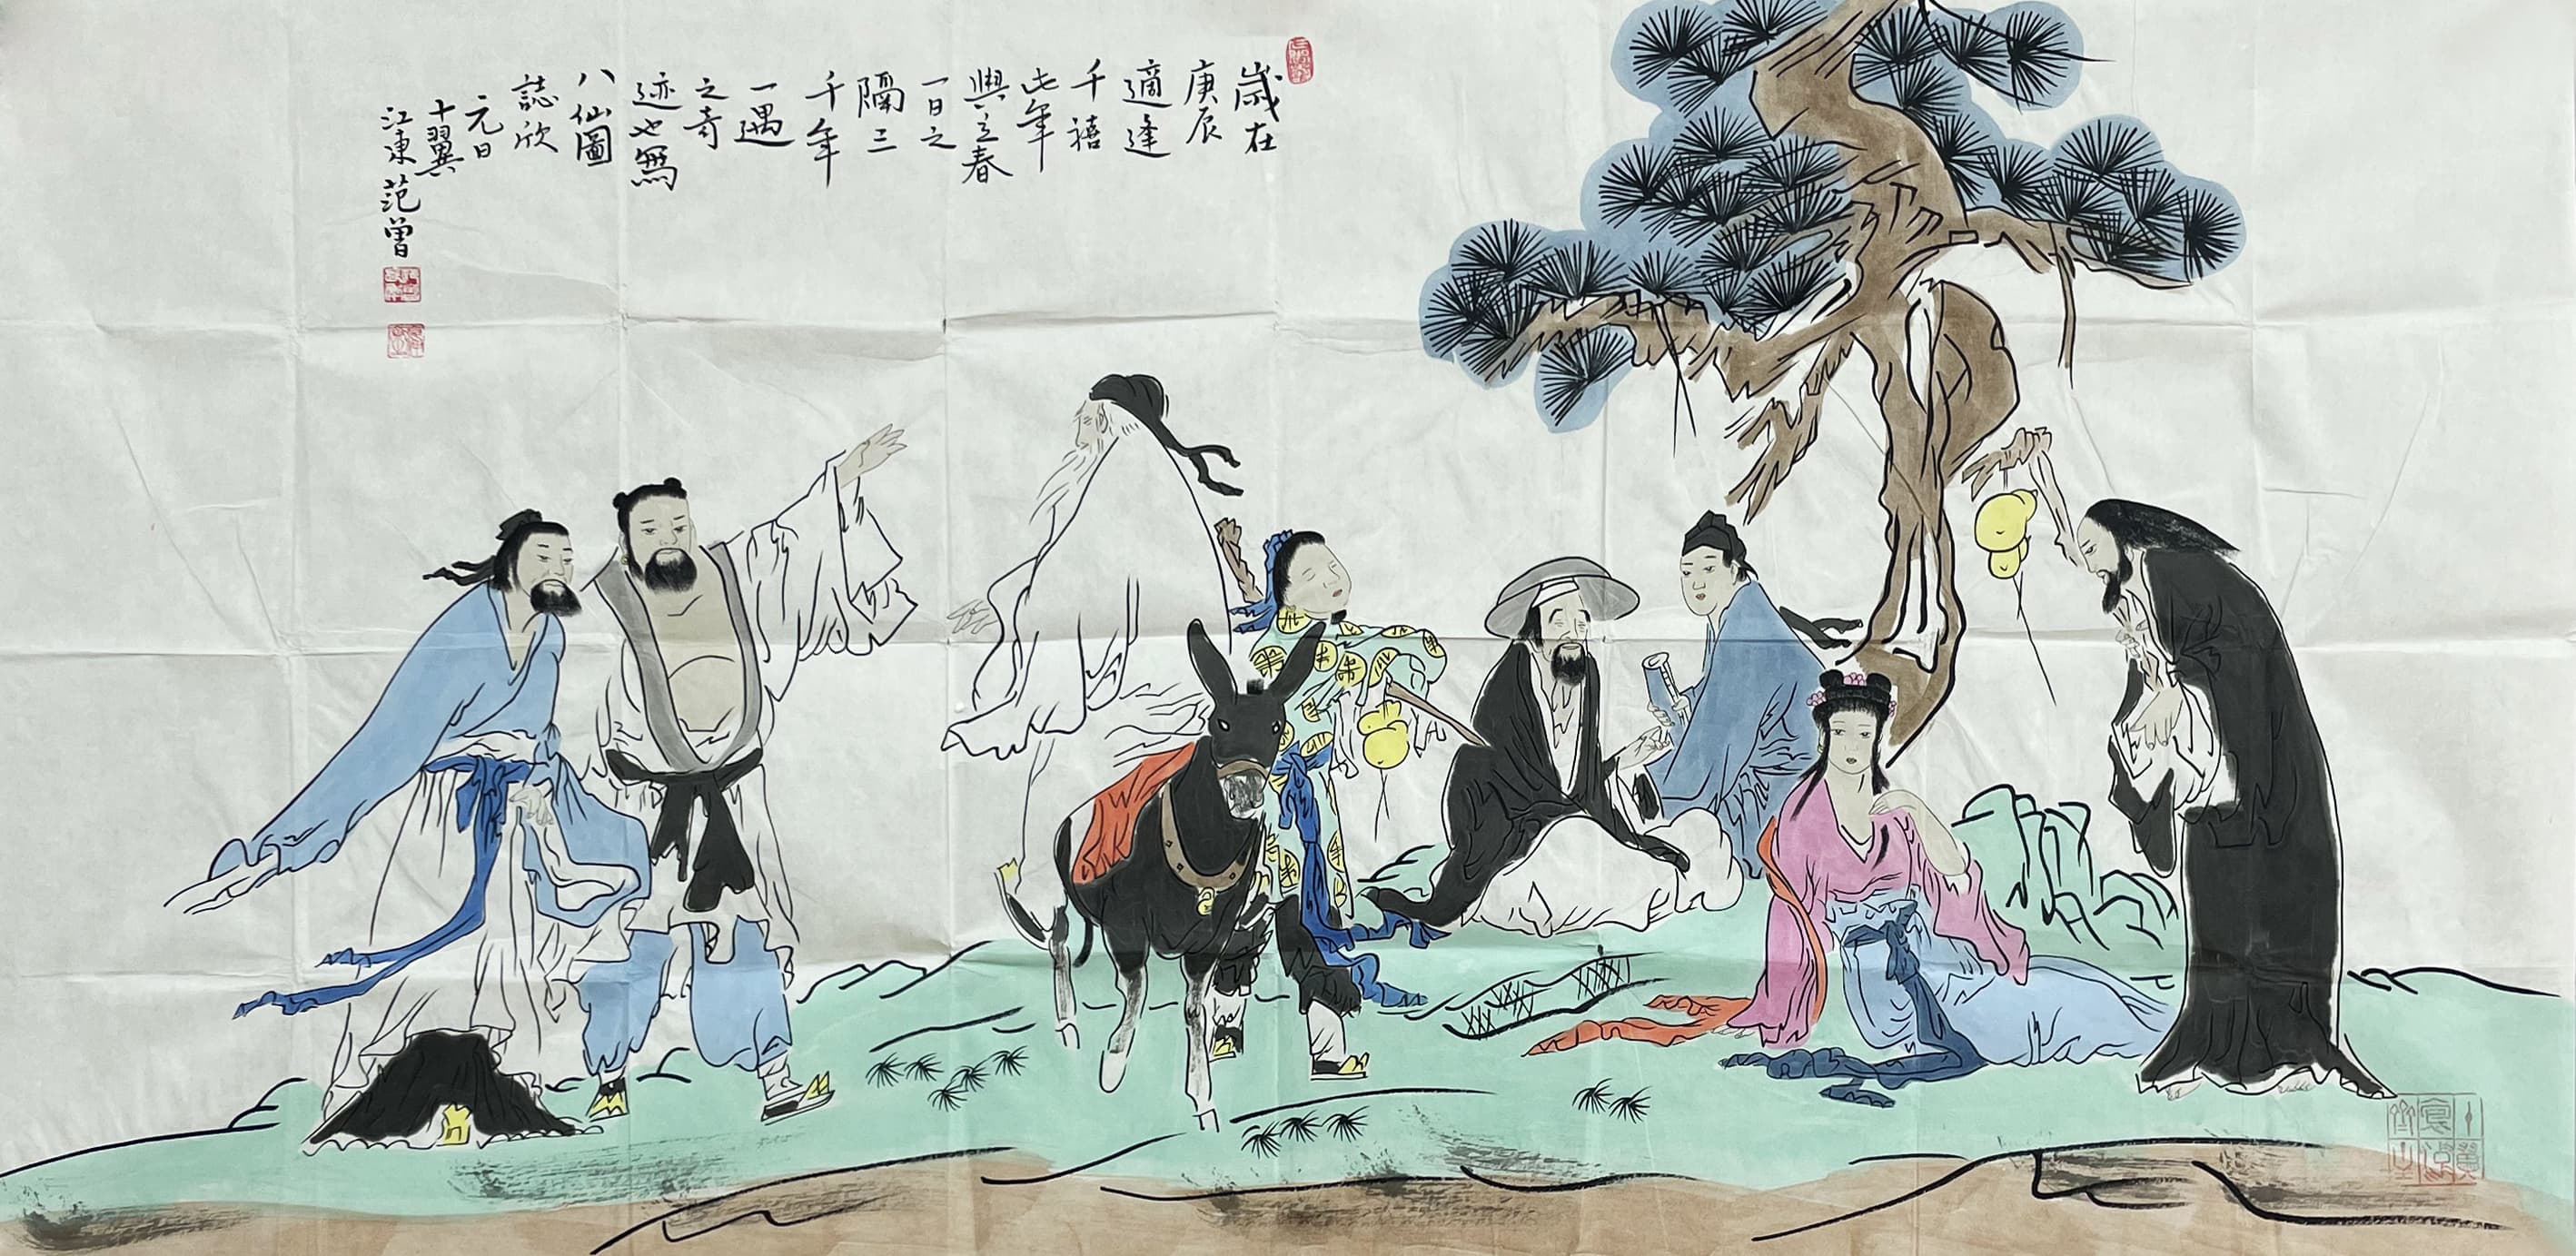 歲在
庚辰
適逢
千禧
此年
與立春
一日之
隔三
千年
一遇
之奇
迹也無
八仙圖
誌欣
元日
十翼
江東范曾